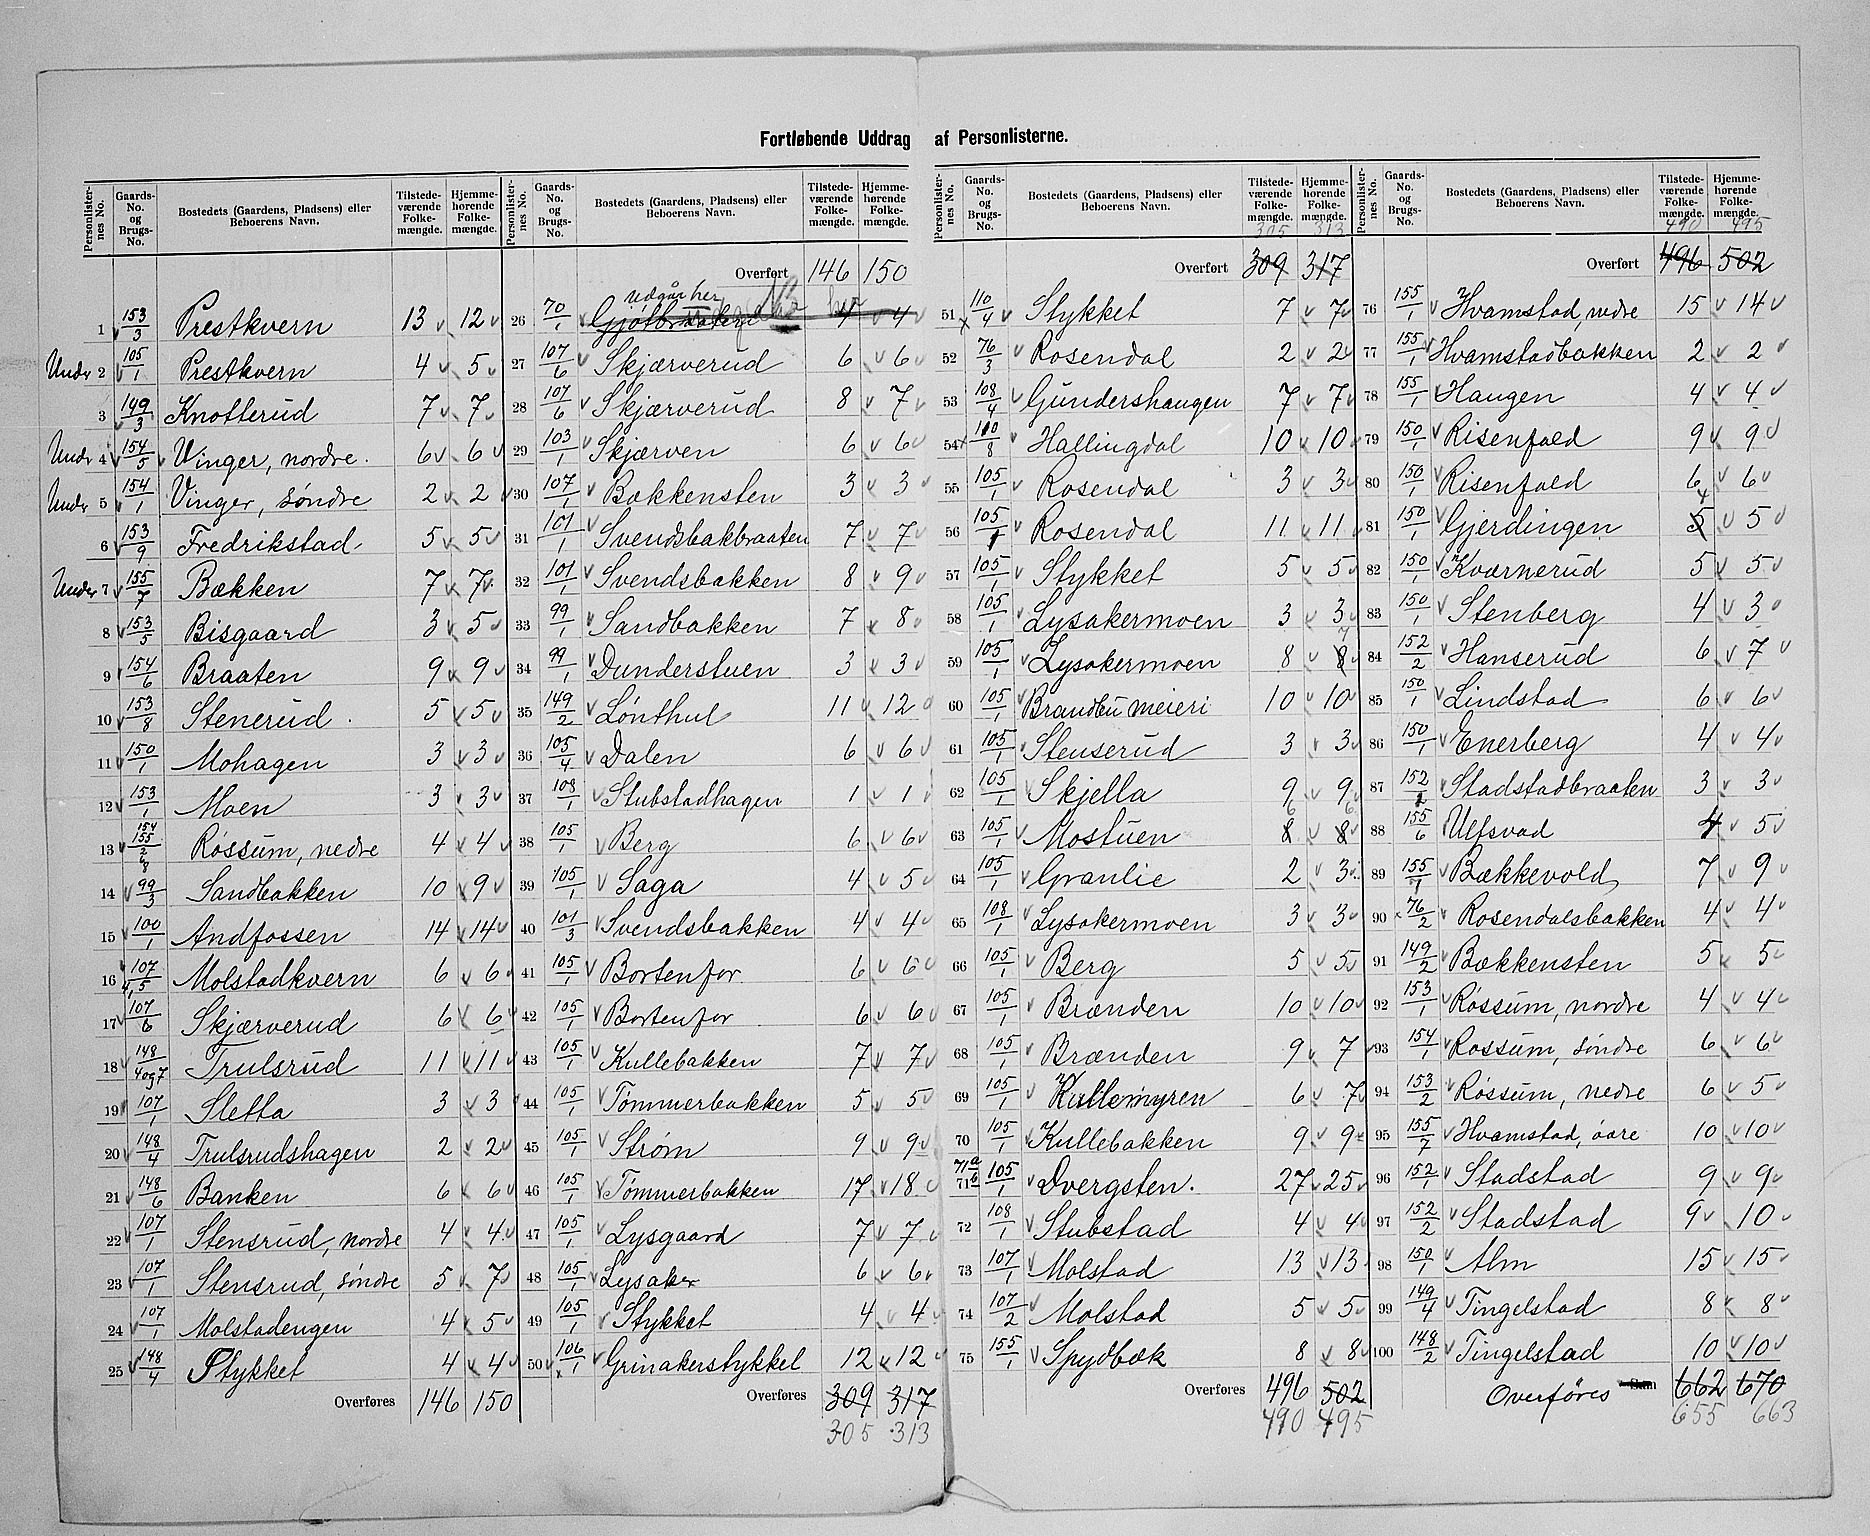 Fortløbende Uddrag af Personlisterne.
Personlister-nes No. | Gaards-No. og Brugs-No. | Bostedets (Gaardens, Pladsens) eller Beboerens Navn. | Tilstede-værende Folke-mængde. | Hjemme-hørende Folke-mængde.
1 153/3 Prestkvern 13 12
Under 2 105/1 Prestkvern 4 5
3 149/3 Knotterud 7 7
Under 4 154/5 Vinger, nordre. 6 6
Under 5 154/1 Vinger, søndre 2 2
6 153/9 Fredrikstad 5 5
Under 7 155/7 Bækken 7 7
8 153/5 Bisgaard 3 5
9 154/6 Braaten 9 9
10 153/8 Stenerud. 5 5
11 150/1 Mohagen 3 3
12 153/1 Moen 3 3
13 154 155/2 6 8 Røssum, nedre 4 4
14 99/3 Sandbakken 10 9
15 100/1 Andfossen 14 14
16 107/4,5 Molstadkvern 6 6
17 107/6 Skjærverud 6 6
18 148/4og7 Trulsrud 11 11
19 107/1 Sletta 3 3
20 148/4 Trulsrudshagen 2 2
21 148/6 Banken 6 6
22 107/1 Stensrud, nordre 4 4
23 107/1 Stensrud, søndre 5 7
24 107/1 Molstadengen 4 5
25 148/4 Stykket 4 4
Overføres 146 150
Personlister-nes No. | Gaards-No. og Brugs-No. | Bostedets (Gaardens, Pladsens) eller Beboerens Navn. | Tilstede-værende Folke-mængde. | Hjemme-hørende Folke-mængde.
Overført 146 150
Udgår her
26 70/1 4 4
27 107/6 Skjærverud 6 6
28 107/6 Skjærverud 8 7
29 103/1 Skjærven 6 6
30 107/1 Bækkensten 3 3
31 101/1 Svendsbakbraaten 7 7
32 101/1 Svendsbakken 8 9
33 99/1 Sandbakken 7 8
34 99/1 Dunderstuen 3 3
35 149/2 Lønthul 11 12
36 105/4 Dalen 6 6
37 108/1 Stubstadhagen 1 1
38 105/1 Berg 6 6
39 105/1 Saga 4 5
40 101/3 Svendsbakken 4 4
41 105/1 Bortenfor 6 6
42 105/1 Bortenfor 6 6
43 105/1 Kullebakken 7 7
44 105/1 Tømmerbakken 5 5
45 105/1 Strøm 9 9
46 105/1 Tømmerbakken 17 18
47 105/1 Lysgaard 7 7
48 105/1 Lysaker 6 6
49 105/1 Stykket 4 4
50 106/1 Grinakerstykket 12 12
Overføres 309 317
305 313
Personlister-nes No. | Gaards-No. og Brugs-No. | Bostedets (Gaardens, Pladsens) eller Beboerens Navn. | Tilstede-værende Folke-mængde. | Hjemme-hørende Folke-mængde.
305 313
Overført 309 317
51 110/4 Stykket 7 7
52 76/3 Rosendal 2 2
53 108/4 Gundershaugen 7 7
54 110/8 Hallingdal 10 10
55 105/1 Rosendal 3 3
56 105/1 Rosendal 11 11
57 105/1 Stykket 5 5
58 105/1 Lysakermoen 3 3
59 105/1 Lysakermoen 8 8 7
60 105/1 Brandbu meieri 10 10
61 105/1 Stenserud 3 3
62 105/1 Skjella 9 9
63 105/1 Mostuen 8 6 8 6
64 105/1 Granlie 2 3
65 108/1 Lysakermoen 3 3
66 105/1 Berg 5 5
67 105/1 Brænden 10 10
68 105/1 Brænden 9 7
69 105/1 Kullemyren 6 7
70 105/1 Kullebakken 9 9
71a 71b 105/1 Dvergsten. 27 25
72 108/1 Stubstad 4 4
73 107/1 Molstad 13 13
74 107/2 Molstad 5 5
75 155/1 Spydbæk 8 8
Overføres 496 502
490 495
Personlister-nes No. | Gaards-No. og Brugs-No. | Bostedets (Gaardens, Pladsens) eller Beboerens Navn. | Tilstede-værende Folke-mængde. | Hjemme-hørende Folke-mængde.
490 495
Overført 496 502
76 155/1 Hvamstad, nedre 15 14
77 155/1 Hvamstadbakken 2 2
78 155/1 Haugen 4 4
79 150/1 Risenfald 9 9
80 150/1 Risenfald 6 6
81 150/1 Gjerdingen 5 4 5
82 150/1 Kværnerud 5 5
83 150/1 Stenberg 4 3
84 152/2 Hanserud 6 7
85 150/1 Lindstad 6 6
86 150/1 Enerberg 4 4
87 152/2 Stadstadbraaten 3 3
88 155/6 Ulfsvad 4 5
89 155/1 Bækkevold 7 9
90 76/2 Rosendalsbakken 4 4
91 149/2 Bækkensten 5 5
92 153/1 Røssum, nordre 4 4
93 154/1 Røssum, søndre 6 6
94 153/2 Røssum, nedre 6 5
95 155/7 Hvamstad, øvre 10 10
96 152/1 Stadstad 9 9
97 152/2 Stadstad 9 10
98 150/1 Alm 15 15
99 149/4 Tingelstad 8 8
100 148/2 Tingelstad 10 10
Overføres 662 670
655 663